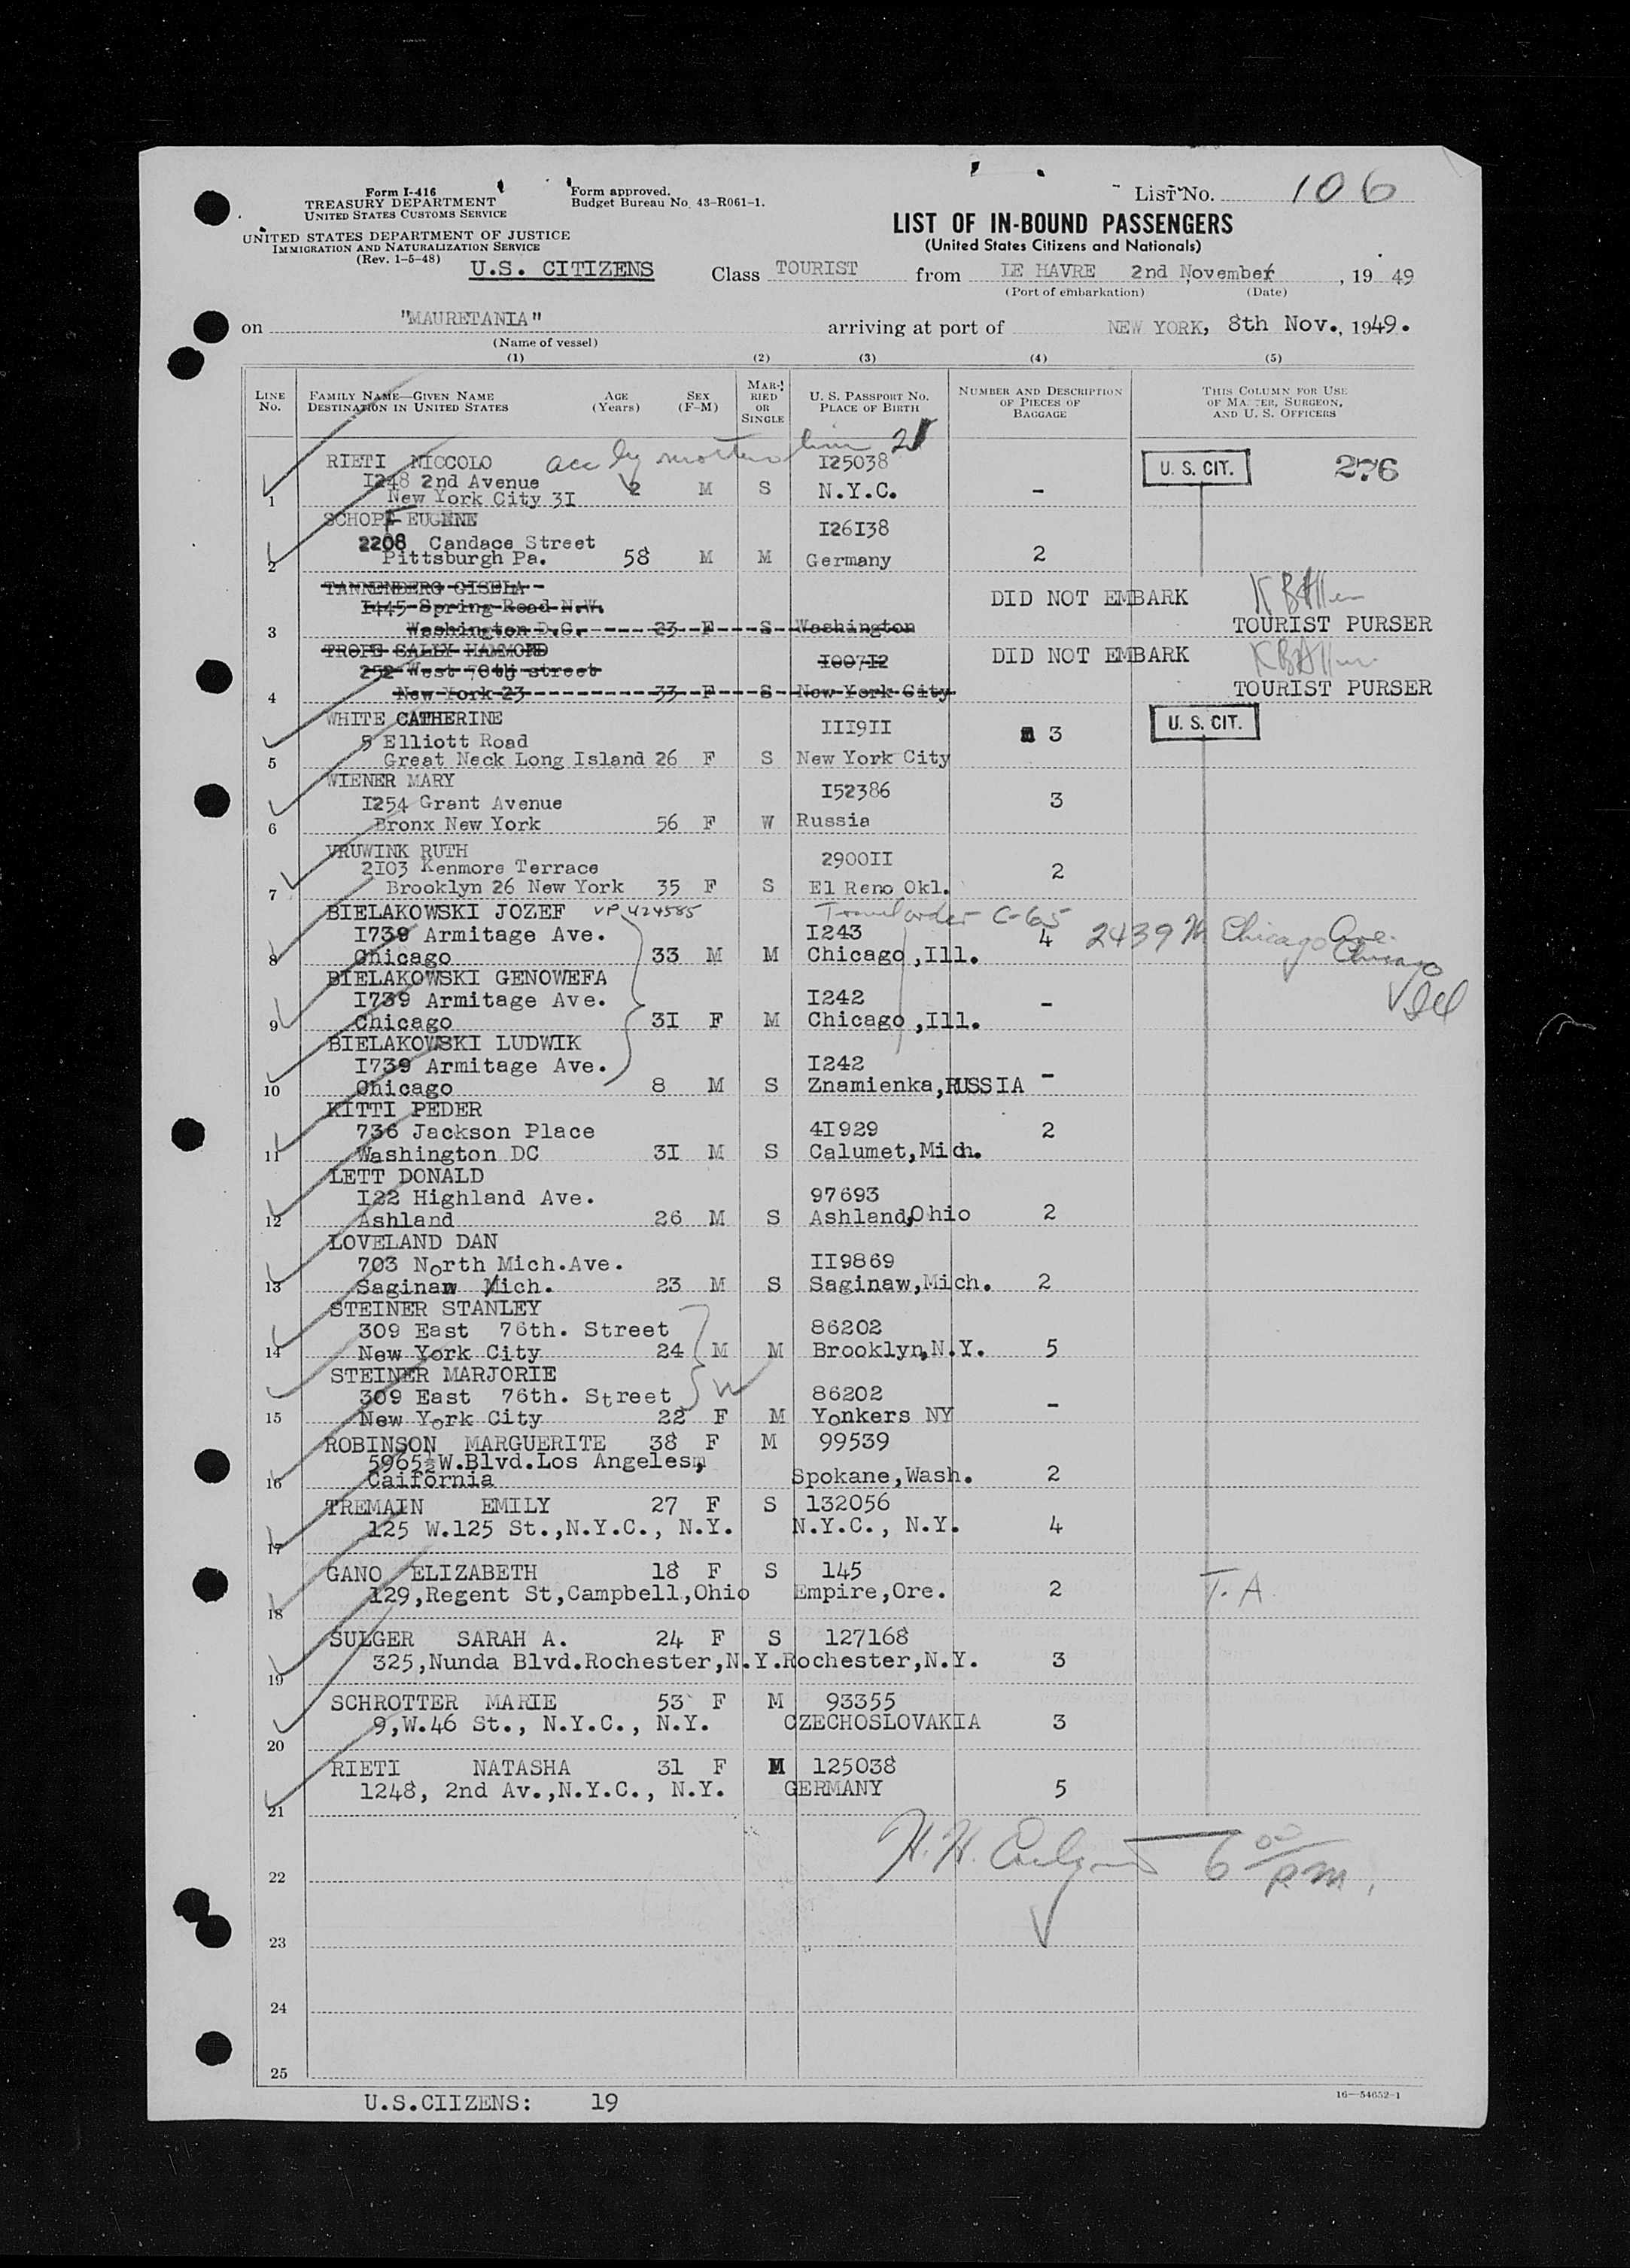 Form I-416
TREASURY DEPARTMENT
UNITED STATES CUSTOMS SERVICE
Form approved.
Budget Bureau No. 43-R061-1.
LIST No. 106
UNITED STATES DEPARTMENT OF JUSTICE
IMMIGRATION AND NATURALIZATION SERVICE
(Rev. 1-5-48)
LIST OF IN-BOUND PASSENGERS
(United States Citizens and Nationals)
U.S. CITIZENS Class TOURIST from LE HAVRE 2nd November, 19 49
(Port of embarkation) (Date)
on "MAURETANIA" arriving at port of NEW YORK, 8th Nov., 1949.
(Name of vessel)
(1) (2) (3) (4) (5)
LINE No. FAMILY NAME—GIVEN NAME DESTINATION IN UNITED STATES AGE (Years) SEX (F-M) MARRIED OR SINGLE U. S. PASSPORT No. PLACE OF BIRTH NUMBER AND DESCRIPTION OF PIECES OF BAGGAGE THIS COLUMN FOR USE OF MASTER, SURGEON, AND U. S. OFFICERS
acc by mother line 21
RIETI NICCOLO I25038 U. S. CIT. 276
I248 2nd Avenue
1 New York City 3I 2 M S N.Y.C. -
SCHOPF EUGENE I26I38
2208 Candace Street
2 Pittsburgh Pa. 58 M M Germany 2
TANNENBERG GISELA DID NOT EMBARK
I445 Spring Road N.W.
3 Washington D.C. 23 F S Washington TOURIST PURSER
TROPE SALLY HAMMOND I007I2 DID NOT EMBARK
252 West 70th street
4 New York 23 33 F S New York City TOURIST PURSER
WHITE CATHERINE III9II 3 U. S. CIT.
5 Elliott Road
5 Great Neck Long Island 26 F S New York City
WIENER MARY I52386 3
I254 Grant Avenue
6 Bronx New York 56 F W Russia
VRUWINK RUTH 2900II 2
2I03 Kenmore Terrace
7 Brooklyn 26 New York 35 F S El Reno Okl.
BIELAKOWSKI JOZEF VP 424585 Travel order C-65
I739 Armitage Ave. I243 4 2439 W Chicago Ave.
8 Chicago 33 M M Chicago,Ill. Chicago
BIELAKOWSKI GENOWEFA Ill
I739 Armitage Ave. I242 -
9 Chicago 3I F M Chicago,Ill.
BIELAKOWSKI LUDWIK
I739 Armitage Ave. I242 -
10 Chicago 8 M S Znamienka,RUSSIA
KITTI PEDER
736 Jackson Place 4I929 2
11 Washington DC 3I M S Calumet,Mich.
LETT DONALD
I22 Highland Ave. 97693
12 Ashland 26 M S Ashland,Ohio 2
LOVELAND DAN
703 North Mich.Ave. II9869
13 Saginaw Mich. 23 M S Saginaw,Mich. 2
STEINER STANLEY
309 East 76th. Street 86202
14 New York City 24 M M Brooklyn,N.Y. 5
STEINER MARJORIE
309 East 76th. Street W 86202
15 New York City 22 F M Yonkers NY -
ROBINSON MARGUERITE 38 F M 99539
5965½W.Blvd.Los Angeles,
16 Caifornia Spokane,Wash. 2
TREMAIN EMILY 27 F S 132056
125 W.125 St.,N.Y.C., N.Y. N.Y.C., N.Y. 4
17
GANO ELIZABETH 18 F S 145
129,Regent St,Campbell,Ohio Empire,Ore. 2 T. A.
18
SULGER SARAH A. 24 F S 127168
325,Nunda Blvd.Rochester,N.Y. Rochester,N.Y. 3
19
SCHROTTER MARIE 53 F M 93355
9,W.46 St., N.Y.C., N.Y. CZECHOSLOVAKIA 3
20
RIETI NATASHA 31 F M 125038
1248, 2nd Av.,N.Y.C., N.Y. GERMANY 5
21
6 00/PM.
22
23
24
25
U.S.CIIZENS: 19
16—54652-1